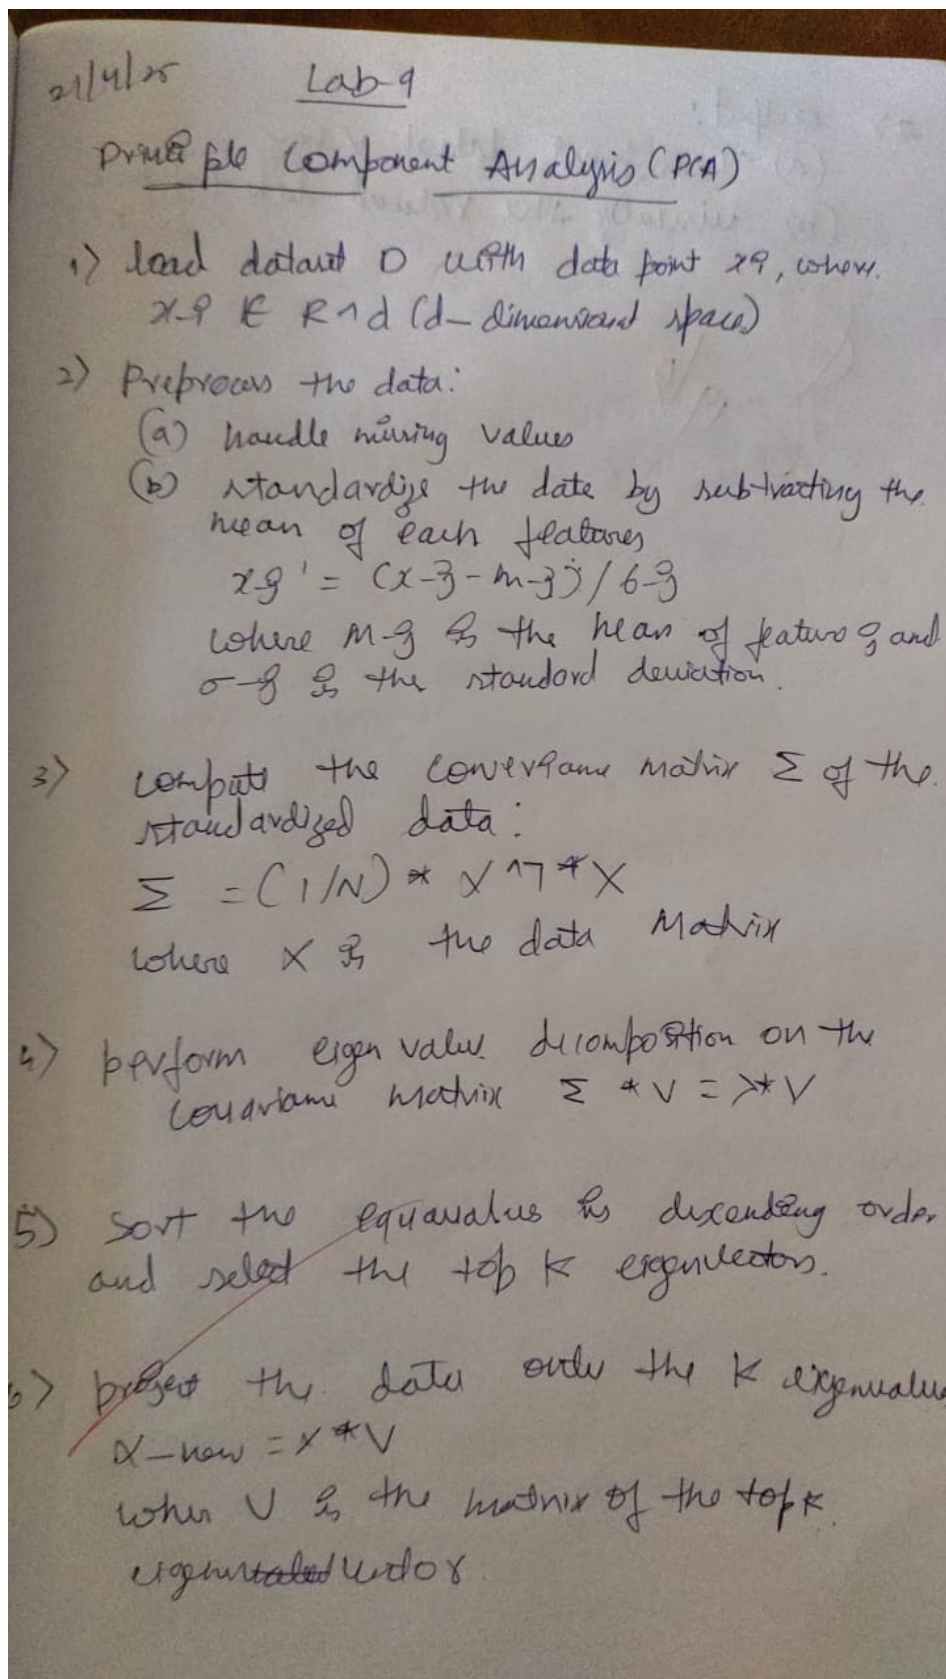 21/4/25
Lab-9
Principle Component Analysis (PCA)
1) load dataset D with data point xi, where
x-i ∈ R^d (d-dimensional space)
2) Preprocess the data:
(a) handle missing values
(b) standardize the data by subtracting the
mean of each features
xj' = (x-j - m-j) / σ-j
where M-j is the mean of feature j and
σ-j is the standard deviation.
3) compute the coveriance matrix Σ of the
standardized data:
Σ = (1/N) * X^T * X
where X is the data Matrix
4) perform eigen value decomposition on the
covariance matrix Σ * V = λ * V
5) Sort the in descending order
and select the top K eigenvectors.
6) project the data onto the K eigenvalue
X-new = X * V
wher V is the matrix of the top K
eigen vector